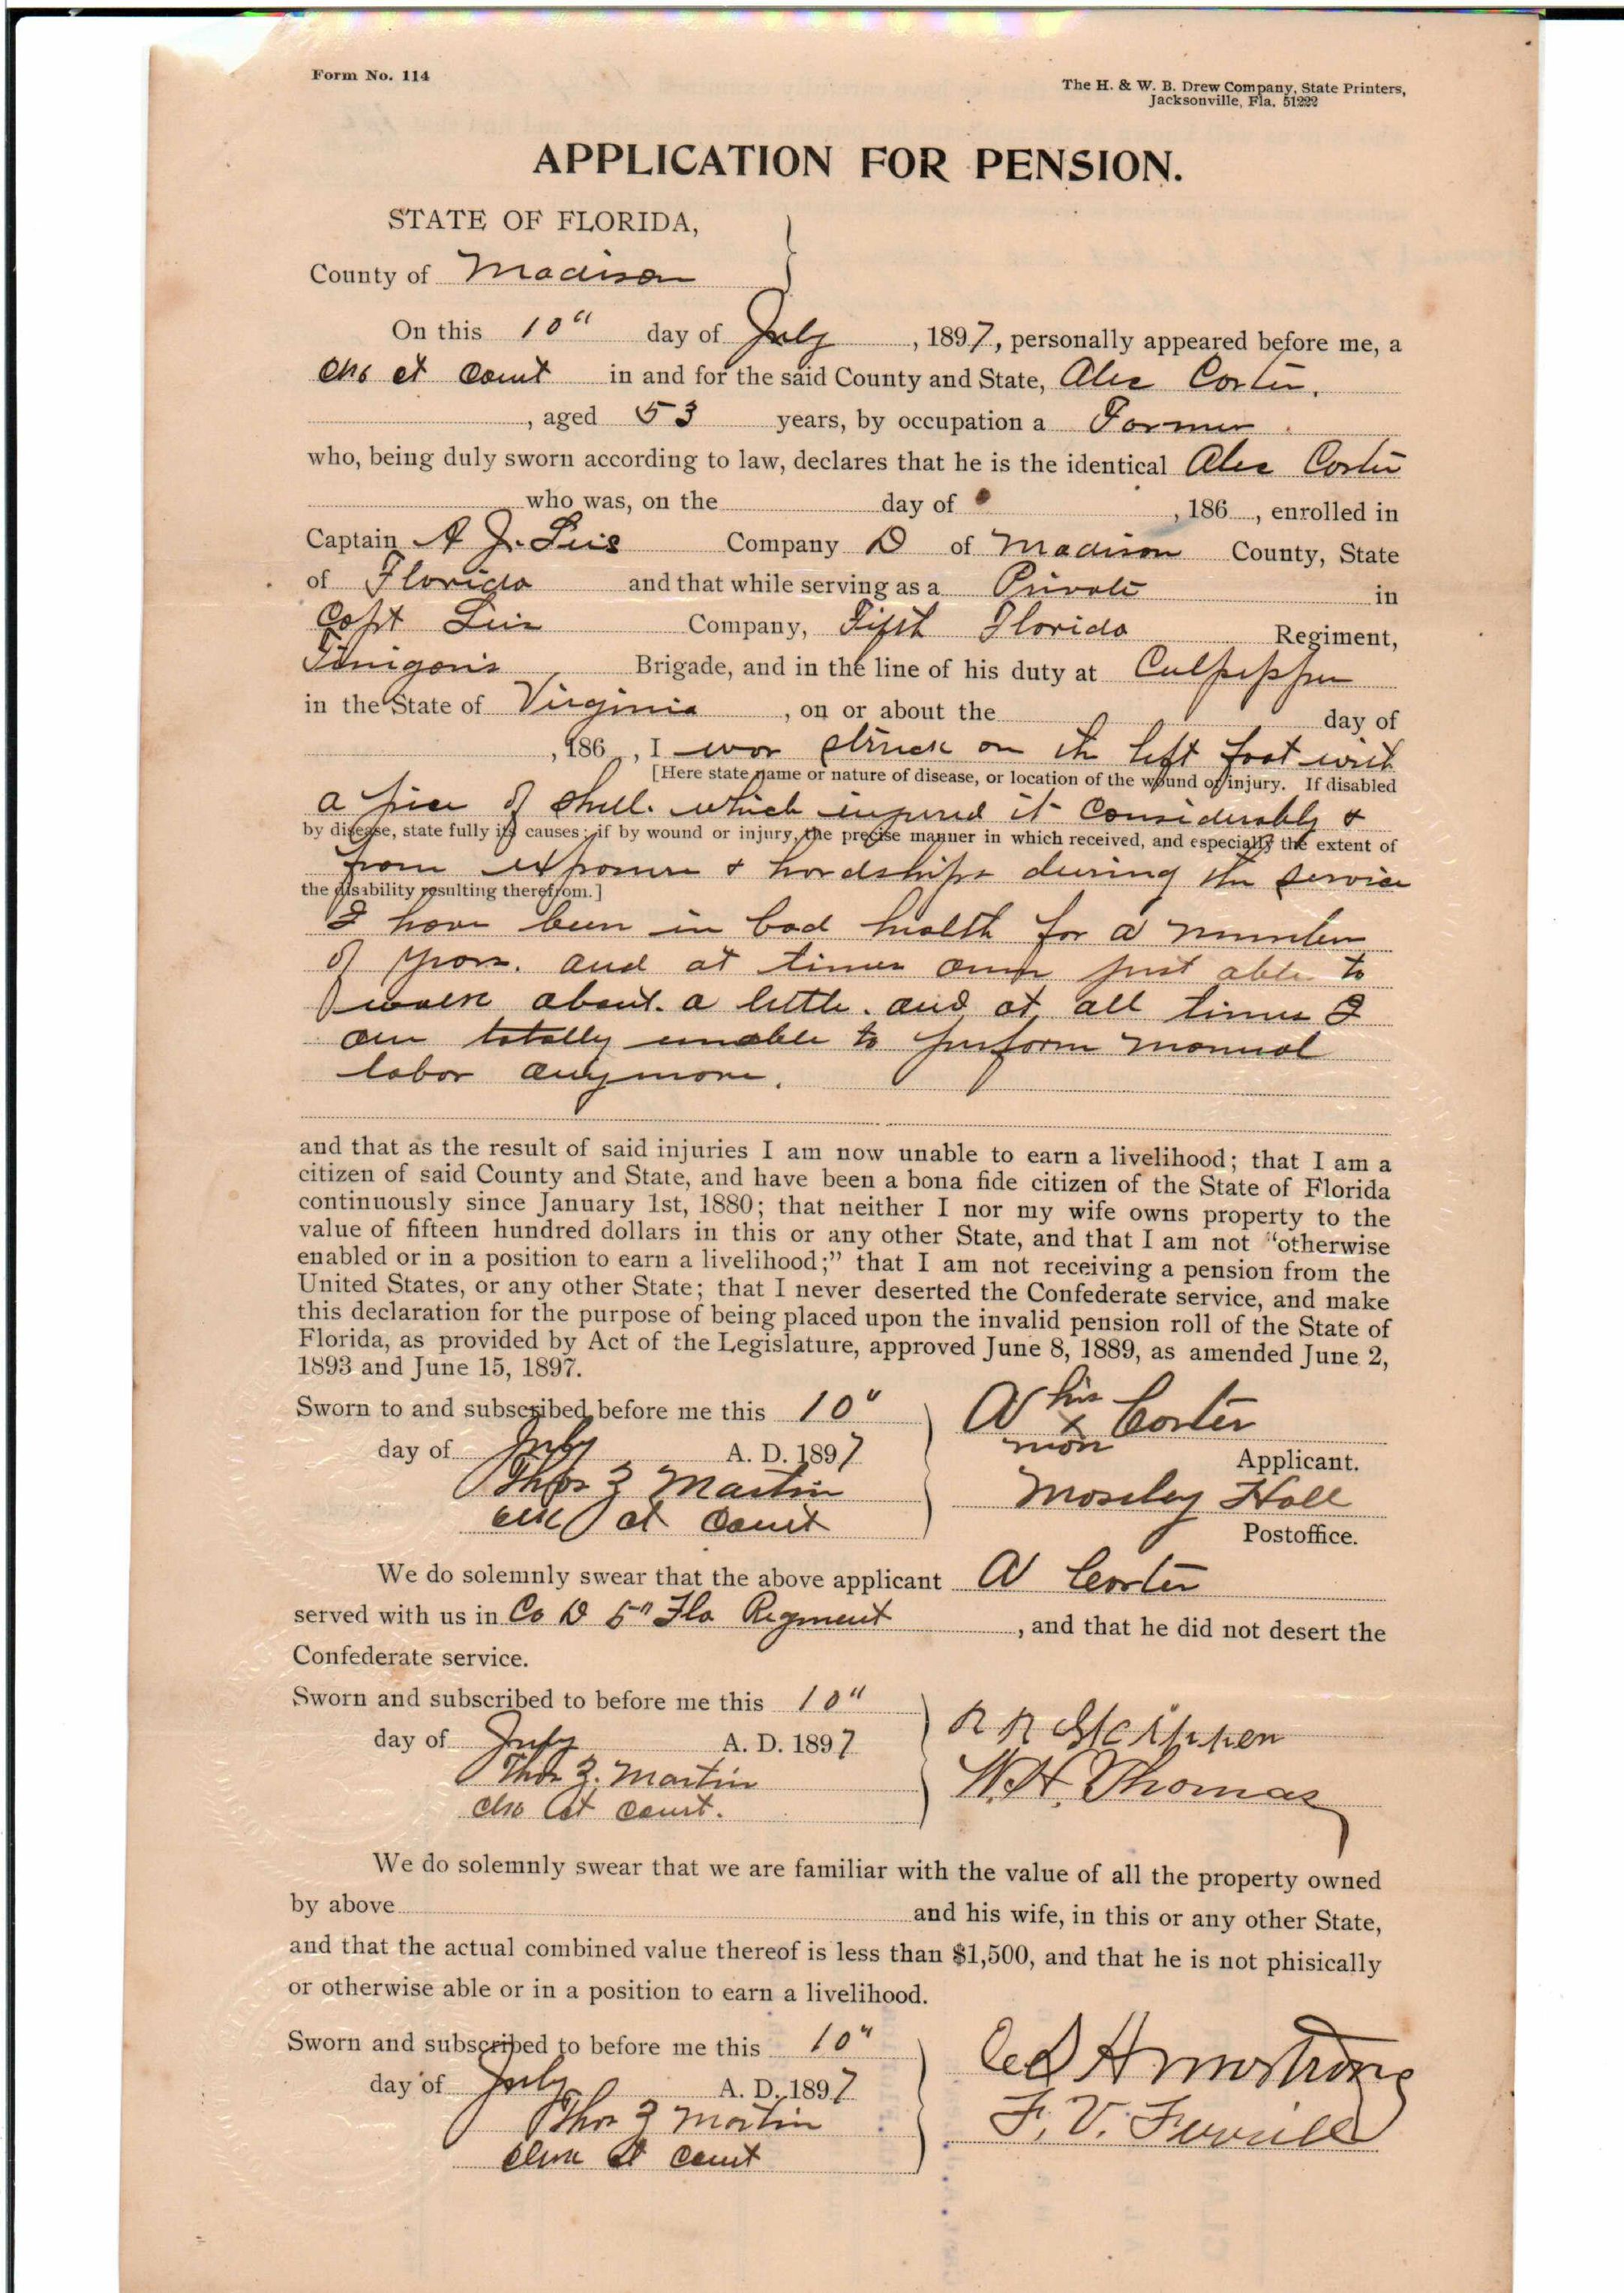 Form No. 114
The H. & W. B. Drew Company, State Printers,
Jacksonville, Fla. 51222
APPLICATION FOR PENSION.
STATE OF FLORIDA,
County of Madison
On this 10" day of July, 1897, personally appeared before me, a
Clk Ct Court in and for the said County and State, Alec Carter,
, aged 53 years, by occupation a Farmer
who, being duly sworn according to law, declares that he is the identical Alec Carter
who was, on the day of , 186 , enrolled in
Captain A J. Company D of Madison County, State
of Florida and that while serving as a Private in
Capt Company, Fifth Florida Regiment,
Brigade, and in the line of his duty at Culpepper
in the State of Virginia , on or about the day of
, 186 , I was struck on the left foot with
[Here state name or nature of disease, or location of the wound or injury. If disabled
a piece of shell. which injured it considerably &
by disease, state fully its causes; if by wound or injury, the precise manner in which received, and especially the extent of
from exposure & hardships during the service
the disability resulting therefrom.]
I have been in bad health for a number
of years. and at times am just able to
walk about. a little. and at all times I
am totally unable to perform manual
labor anymore.
and that as the result of said injuries I am now unable to earn a livelihood; that I am a
citizen of said County and State, and have been a bona fide citizen of the State of Florida
continuously since January 1st, 1880; that neither I nor my wife owns property to the
value of fifteen hundred dollars in this or any other State, and that I am not "otherwise
enabled or in a position to earn a livelihood;" that I am not receiving a pension from the
United States, or any other State; that I never deserted the Confederate service, and make
this declaration for the purpose of being placed upon the invalid pension roll of the State of
Florida, as provided by Act of the Legislature, approved June 8, 1889, as amended June 2,
1893 and June 15, 1897.
Sworn to and subscribed before me this 10"
day of July A. D. 1897
Thos Z Martin
Clk Ct Court
A his x mark Carter
Applicant.
Moseley Hall
Postoffice.
We do solemnly swear that the above applicant A Carter
served with us in Co D 5" Fla Regment , and that he did not desert the
Confederate service.
Sworn and subscribed to before me this 10"
day of July A. D. 1897
Thos Z. Martin
Clk Ct Court.
W. H. Thomas
We do solemnly swear that we are familiar with the value of all the property owned
by above and his wife, in this or any other State,
and that the actual combined value thereof is less than $1,500, and that he is not phisically
or otherwise able or in a position to earn a livelihood.
Sworn and subscribed to before me this 10"
day of July A. D. 1897
Thos Z Martin
Clerk Ct Court
Armstrong
F. V.